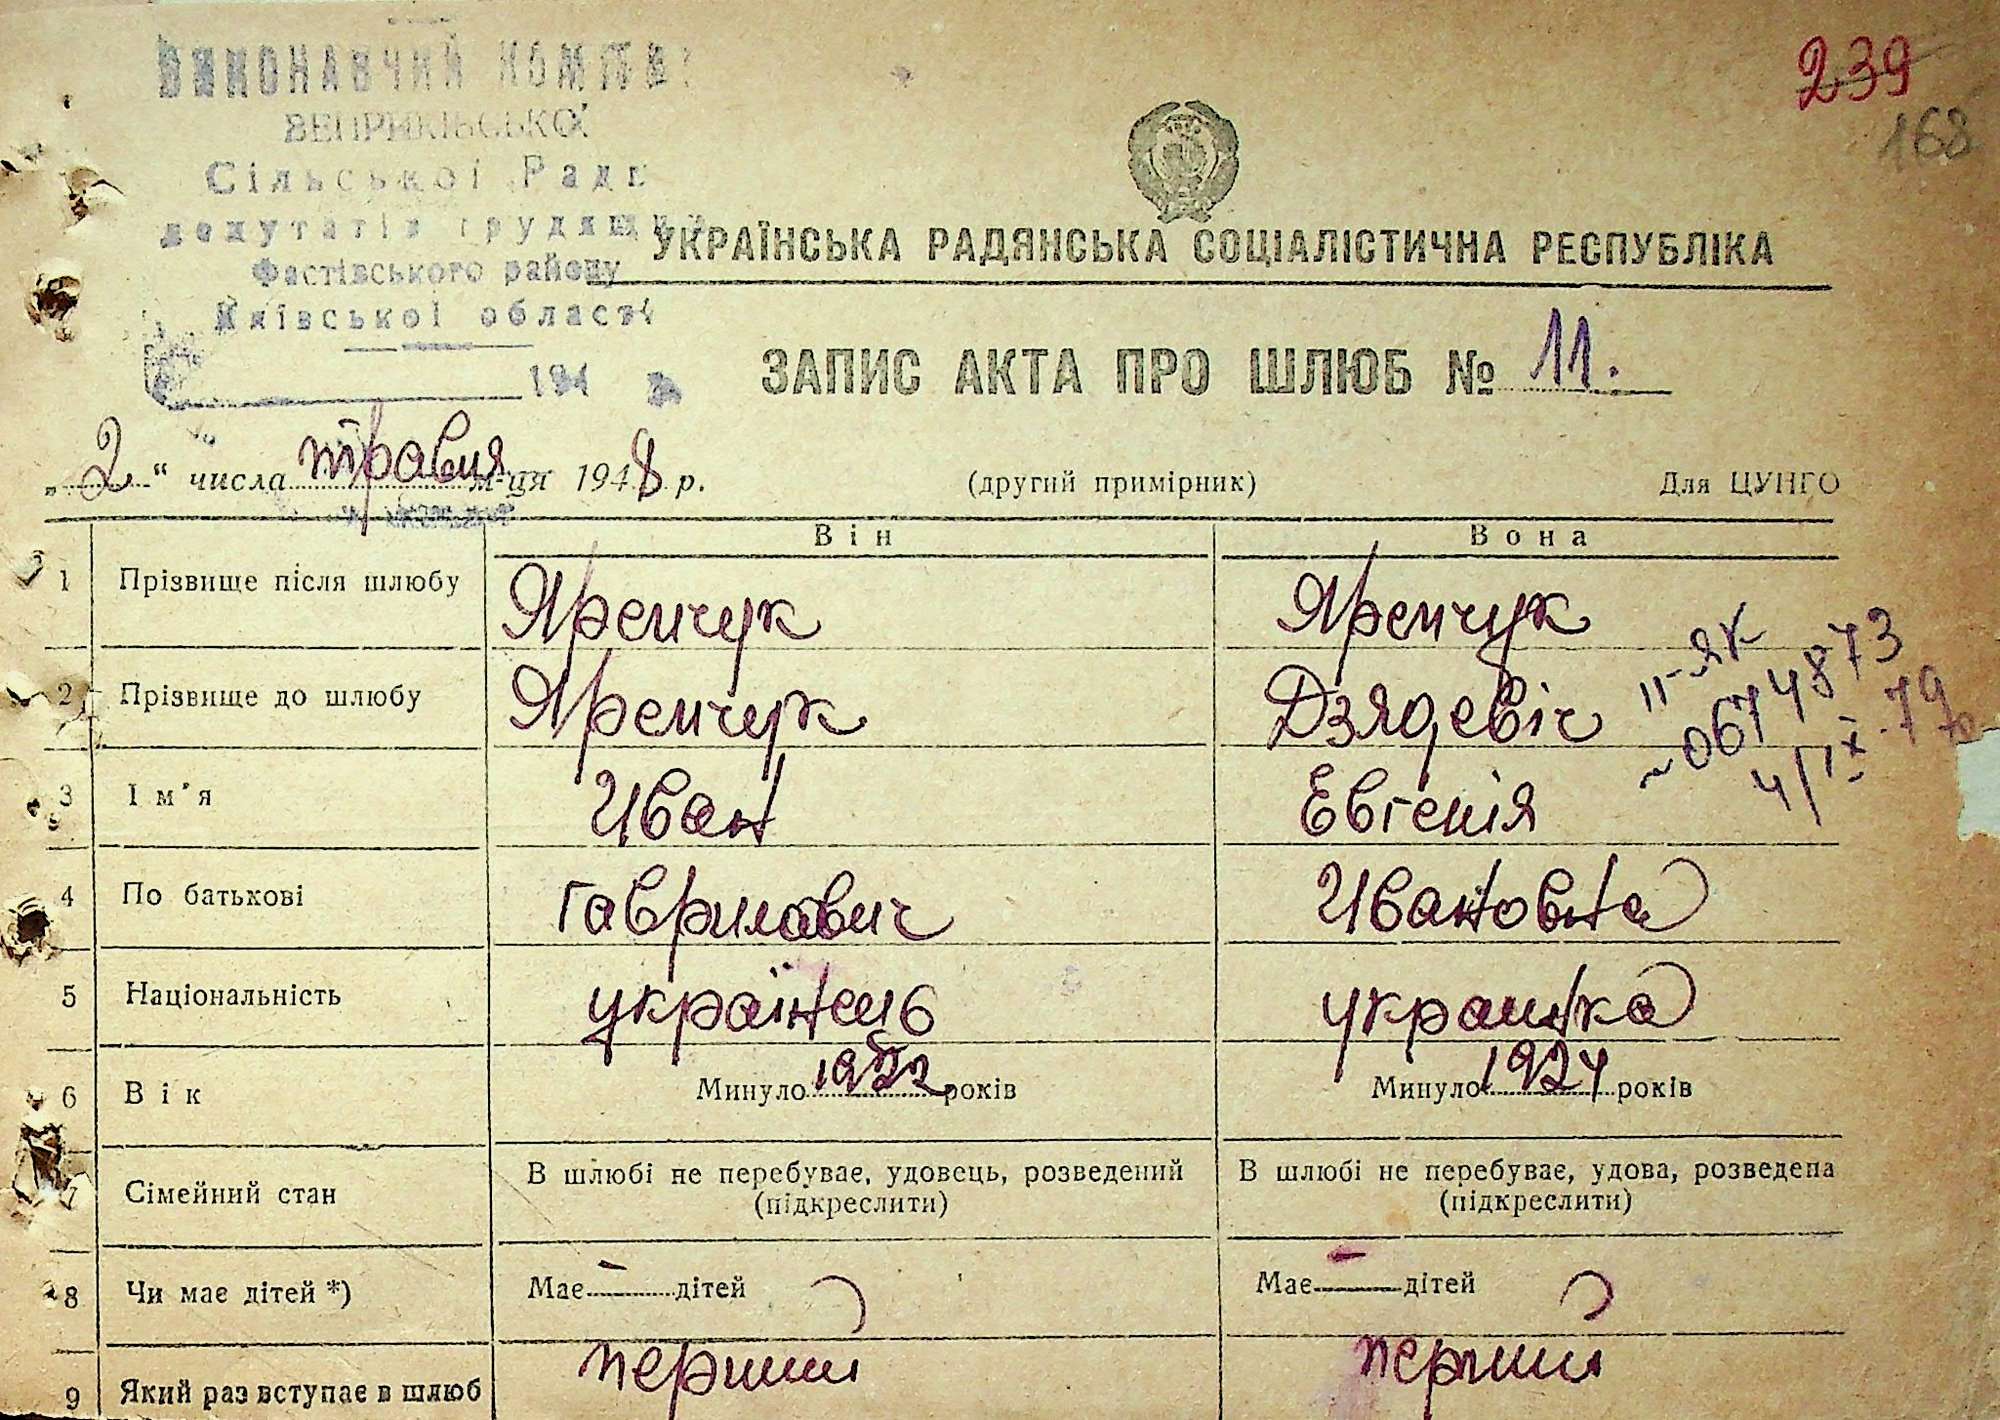 239
168
ВИКОНАВЧИЙ КОМІТЕ
ВЕПРИКІВСЬКОЇ
Сільської Ради
депутатів трудящих
Фастівського району
Київської області
194
УКРАЇНСЬКА РАДЯНСЬКА СОЦІАЛІСТИЧНА РЕСПУБЛІКА
ЗАПИС АКТА ПРО ШЛЮБ № 11.
„2“ числа травня м-ця 1948 р. (другий примірник) Для ЦУНГО
Він Вона
1 Прізвище після шлюбу Яремчук Яремчук
2 Прізвище до шлюбу Яремчук Дзядевіч
II-ЯК
~0674873
4/IX-79
3 Ім'я Иван Евгенія
4 По батькові Гаврилович Ивановна
5 Національність українець украинка
6 Вік Минуло 1922 років Минуло 1924 років
7 Сімейний стан В шлюбі не перебуває, удовець, розведений В шлюбі не перебуває, удова, розведена
(підкреслити) (підкреслити)
8 Чи має дітей *) Має — дітей Має — дітей
9 Який раз вступає в шлюб перший перший